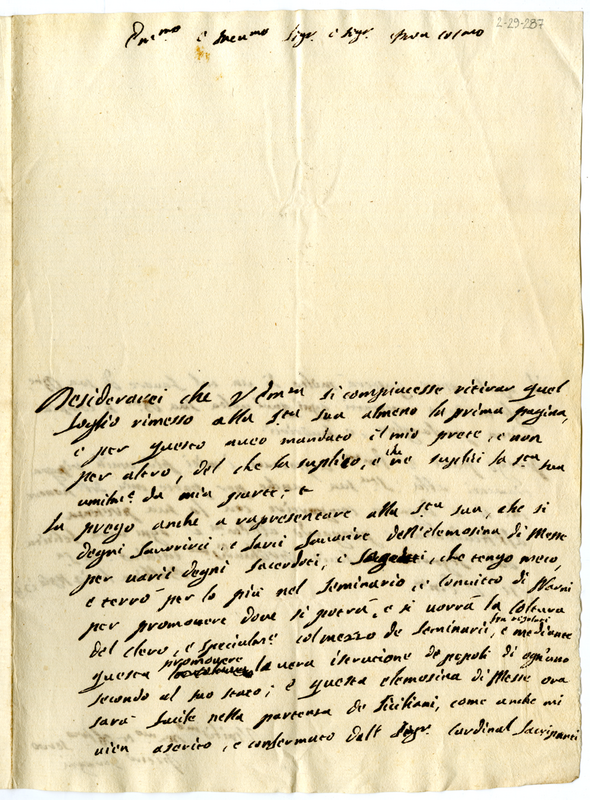 2-29-287
Em.mo e Rev.mo Sigr. e Sigr. Pron Colmo
Desiderarei che V Em.za si compiacesse ritirar quel
foglio rimesso alla S.ta sua almeno la prima pagina,
e per questo avevo mandato il mio prete, e non
per altro, del che la suplico, e che ne suplichi la S.ta sua
umilm.e da mia parte; e
La prego anche a rapresentare alla S.ta sua, che si
degni favorirci, e farci favorire dell'elemosina di Messe
per varii degni sacerdoti, e soggetti, che tengo meco,
e terrò per lo più nel seminario, e convitto di Narni
per promovere dove si potrà, e si vorrà la coltura
del clero, e specialm.e col mezzo de seminarii, ben regolati, e mediante
questa promovere la vera istruzione de popoli di ogn'uno
secondo al suo stato; e questa elemosina di Messe ora
sarà facile nella partenza de Siciliani, come anche mi
vien asserito, e confermato dall' Sigr. Cardinal Sacripanti